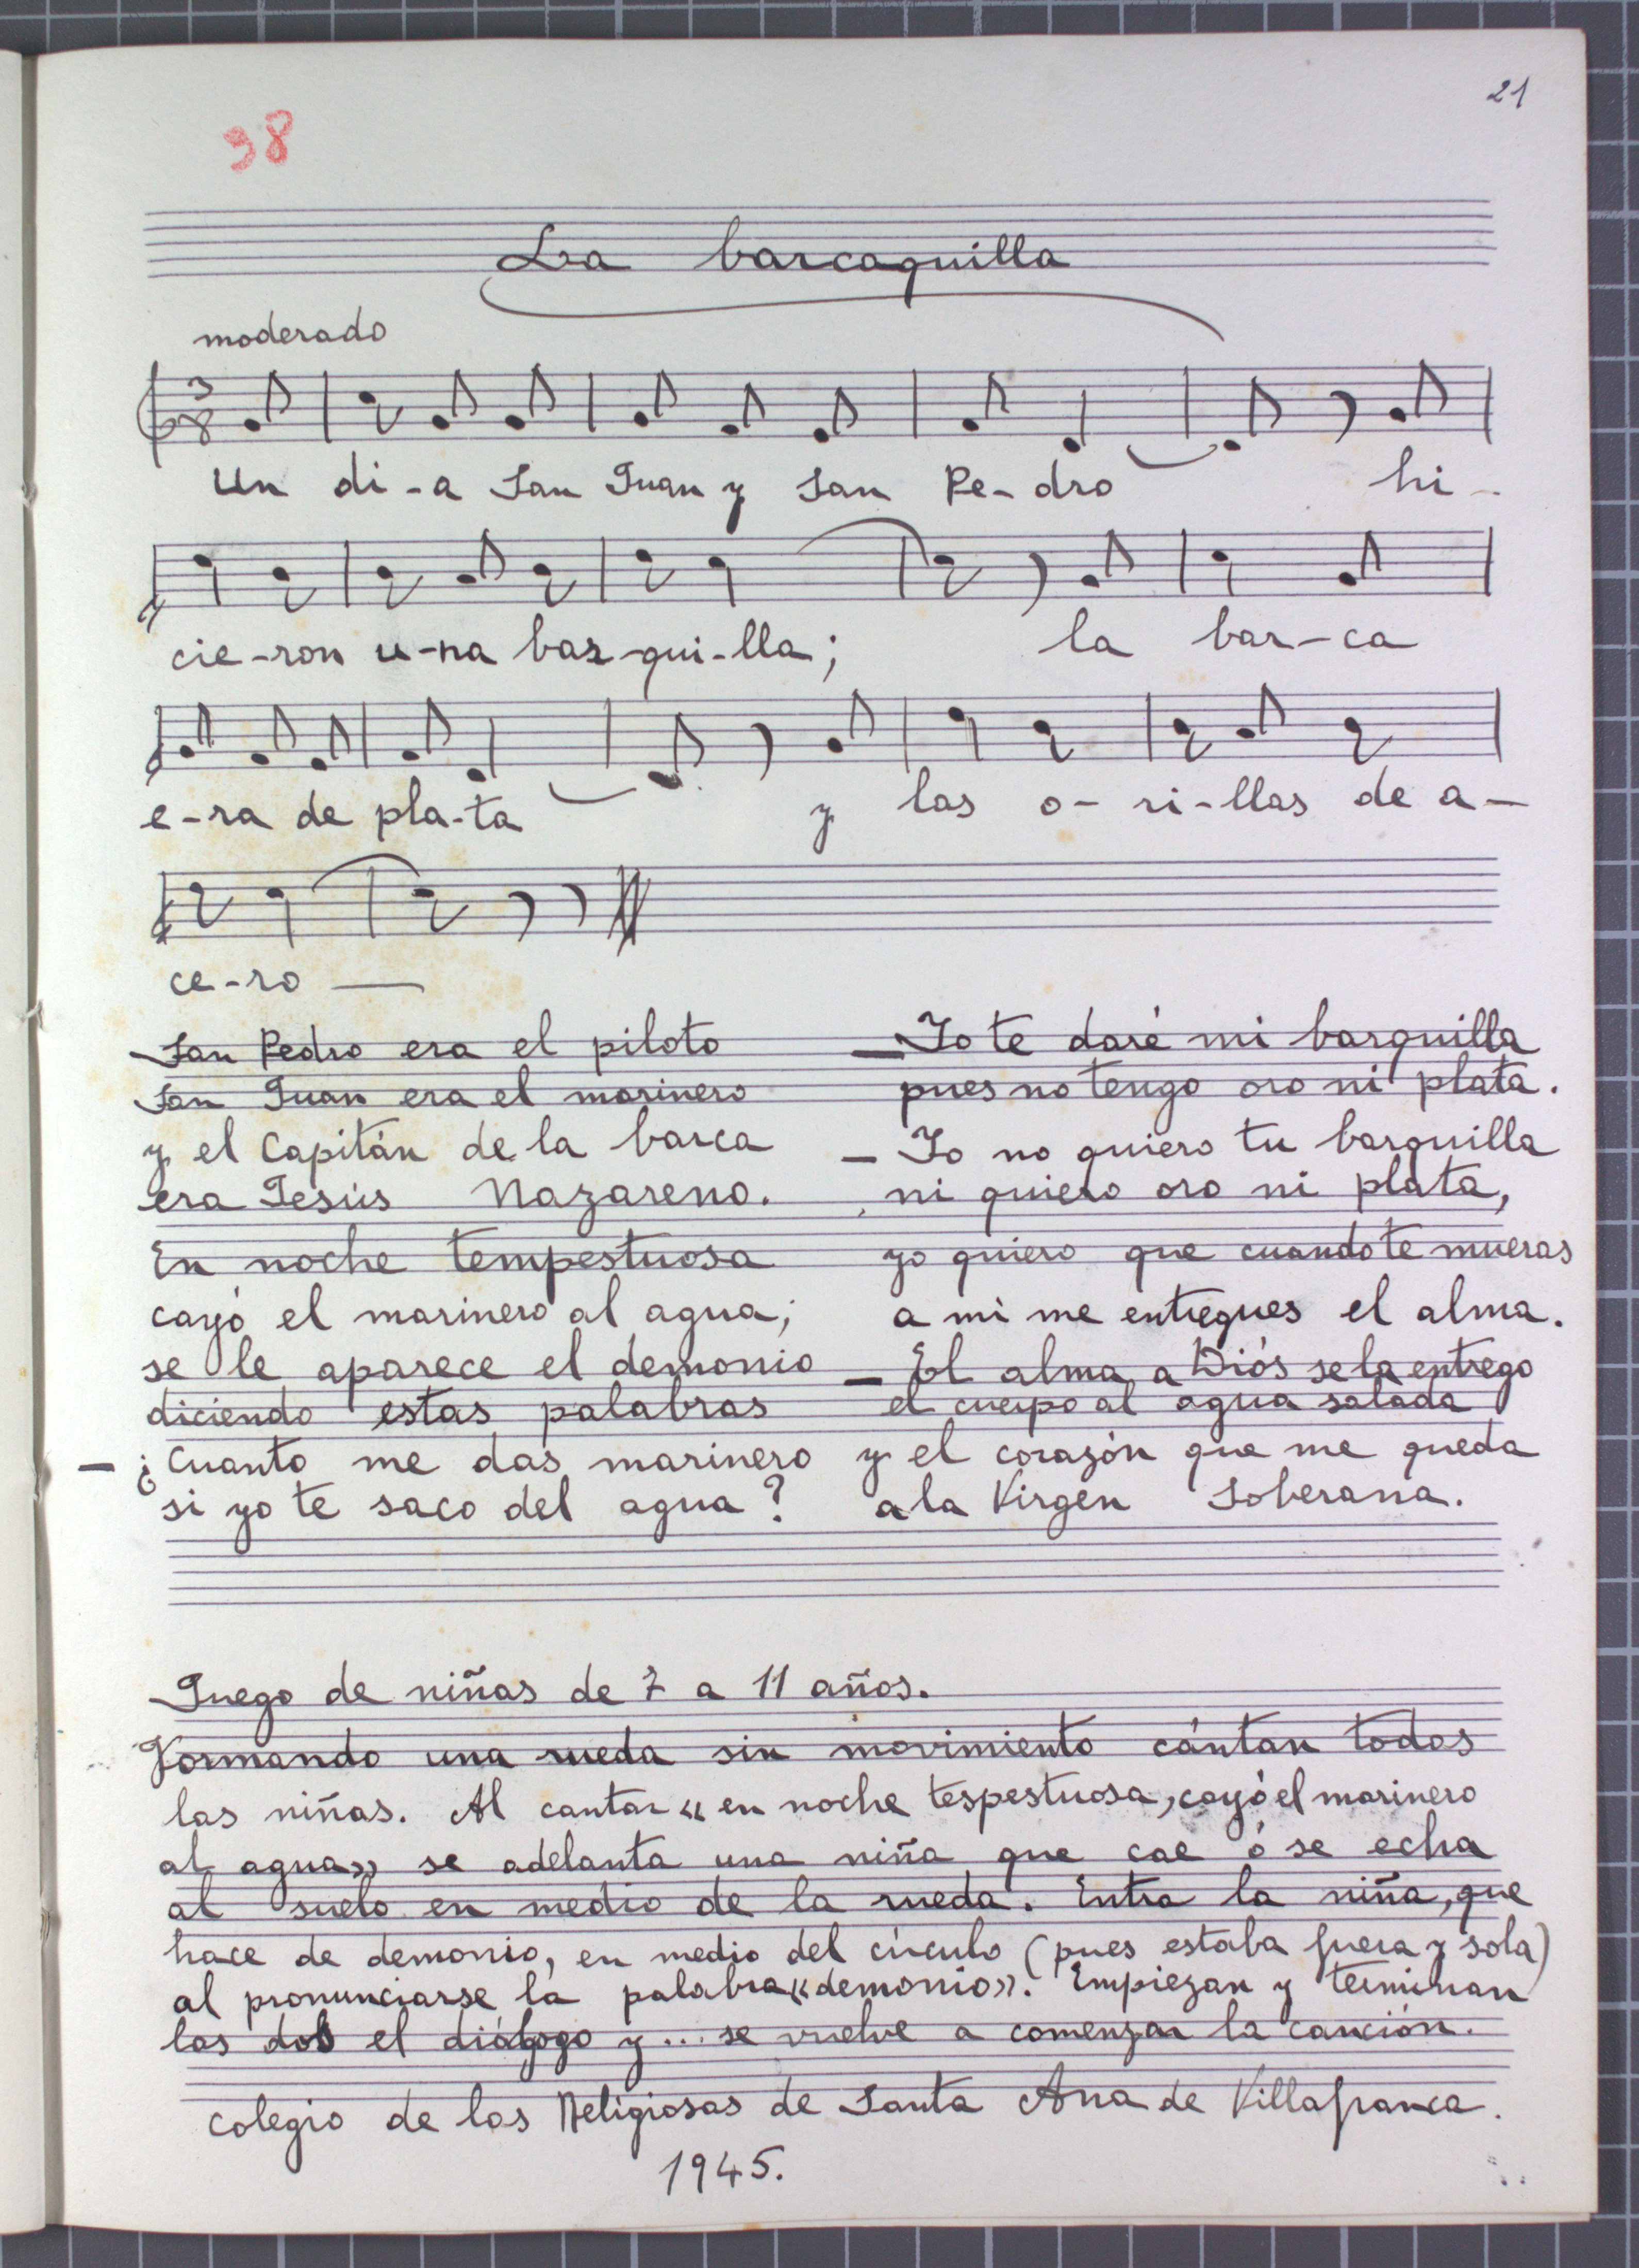 21
98
La barcaquilla
moderado
3
8
Un di-a San Juan y San Pe-dro hi-
cie-ron u-na bar-qui-lla; la bar-ca
e-ra de pla-ta y las o-ri-llas de a-
ce-ro —
San Pedro era el piloto
San Juan era el marinero
y el Capitán de la barca
era Jesús Nazareno.
En noche tempestuosa
cayó el marinero al agua;
se le aparece el demonio
diciendo estas palabras
- ¿Cuanto me das marinero
si yo te saco del agua?
- Yo te daré mi barquilla
pues no tengo oro ni plata.
- Yo no quiero tu barquilla
ni quiero oro ni plata,
yo quiero que cuando te mueras
a mi me entregues el alma.
- El alma a Diós se la entrego
el cuerpo al agua salada
y el corazón que me queda
a la Virgen Soberana.
Juego de niñas de 7 a 11 años.
Formando una rueda sin movimiento cántan todas
las niñas. Al cantar «en noche tespestuosa, cayó el marinero
al agua» se adelanta una niña que cae ó se echa
al suelo en medio de la rueda. Entra la niña, que
hace de demonio, en medio del círculo (pues estaba fuera y sola)
al pronunciarse la palabra «demonio». Empiezan y terminan
las dos el diálogo y... se vuelve a comenzar la canción.
Colegio de las Religiosas de Santa Ana de Villafranca.
1945.